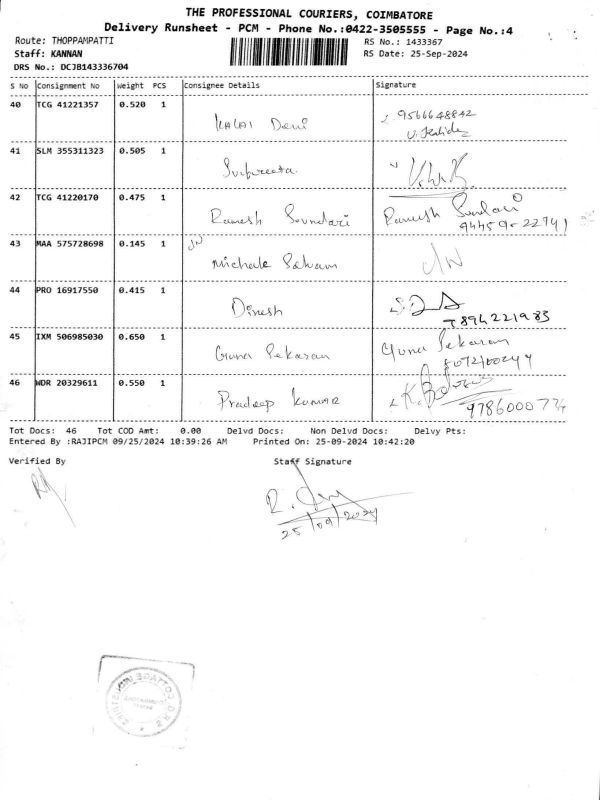 THE PROFESSIONAL COURIERS, COIMBATORE
Delivery Runsheet - PCM - Phone No.:0422-3505555 - Page No.:4
Route: THOPPAMPATTI RS No.: 1433367
Staff: KANNAN RS Date: 25-Sep-2024
DRS No.: DCJB143336704
S No Consignment No Weight PCS Consignee Details Signature
40 TCG 41221357 0.520 1 KALAI Devi 9566648842
41 SLM 355311323 0.505 1
42 TCG 41220170 0.475 1 Ramesh Soundari Ramesh Sundari
94459-22941
43 MAA 575728698 0.145 1 Michale Selvam
44 PRO 16917550 0.415 1 Dinesh
7894221983
45 IXM 506985030 0.650 1 Guna Sekaran Guna Sekaran
46 WDR 20329611 0.550 1 Pradeep kumar
Tot Docs: 46 Tot COD Amt: 0.00 Delvd Docs: Non Delvd Docs: Delvy Pts:
Entered By :RAJIPCM 09/25/2024 10:39:26 AM Printed On: 25-09-2024 10:42:20
Verified By Staff Signature
25/09/2024